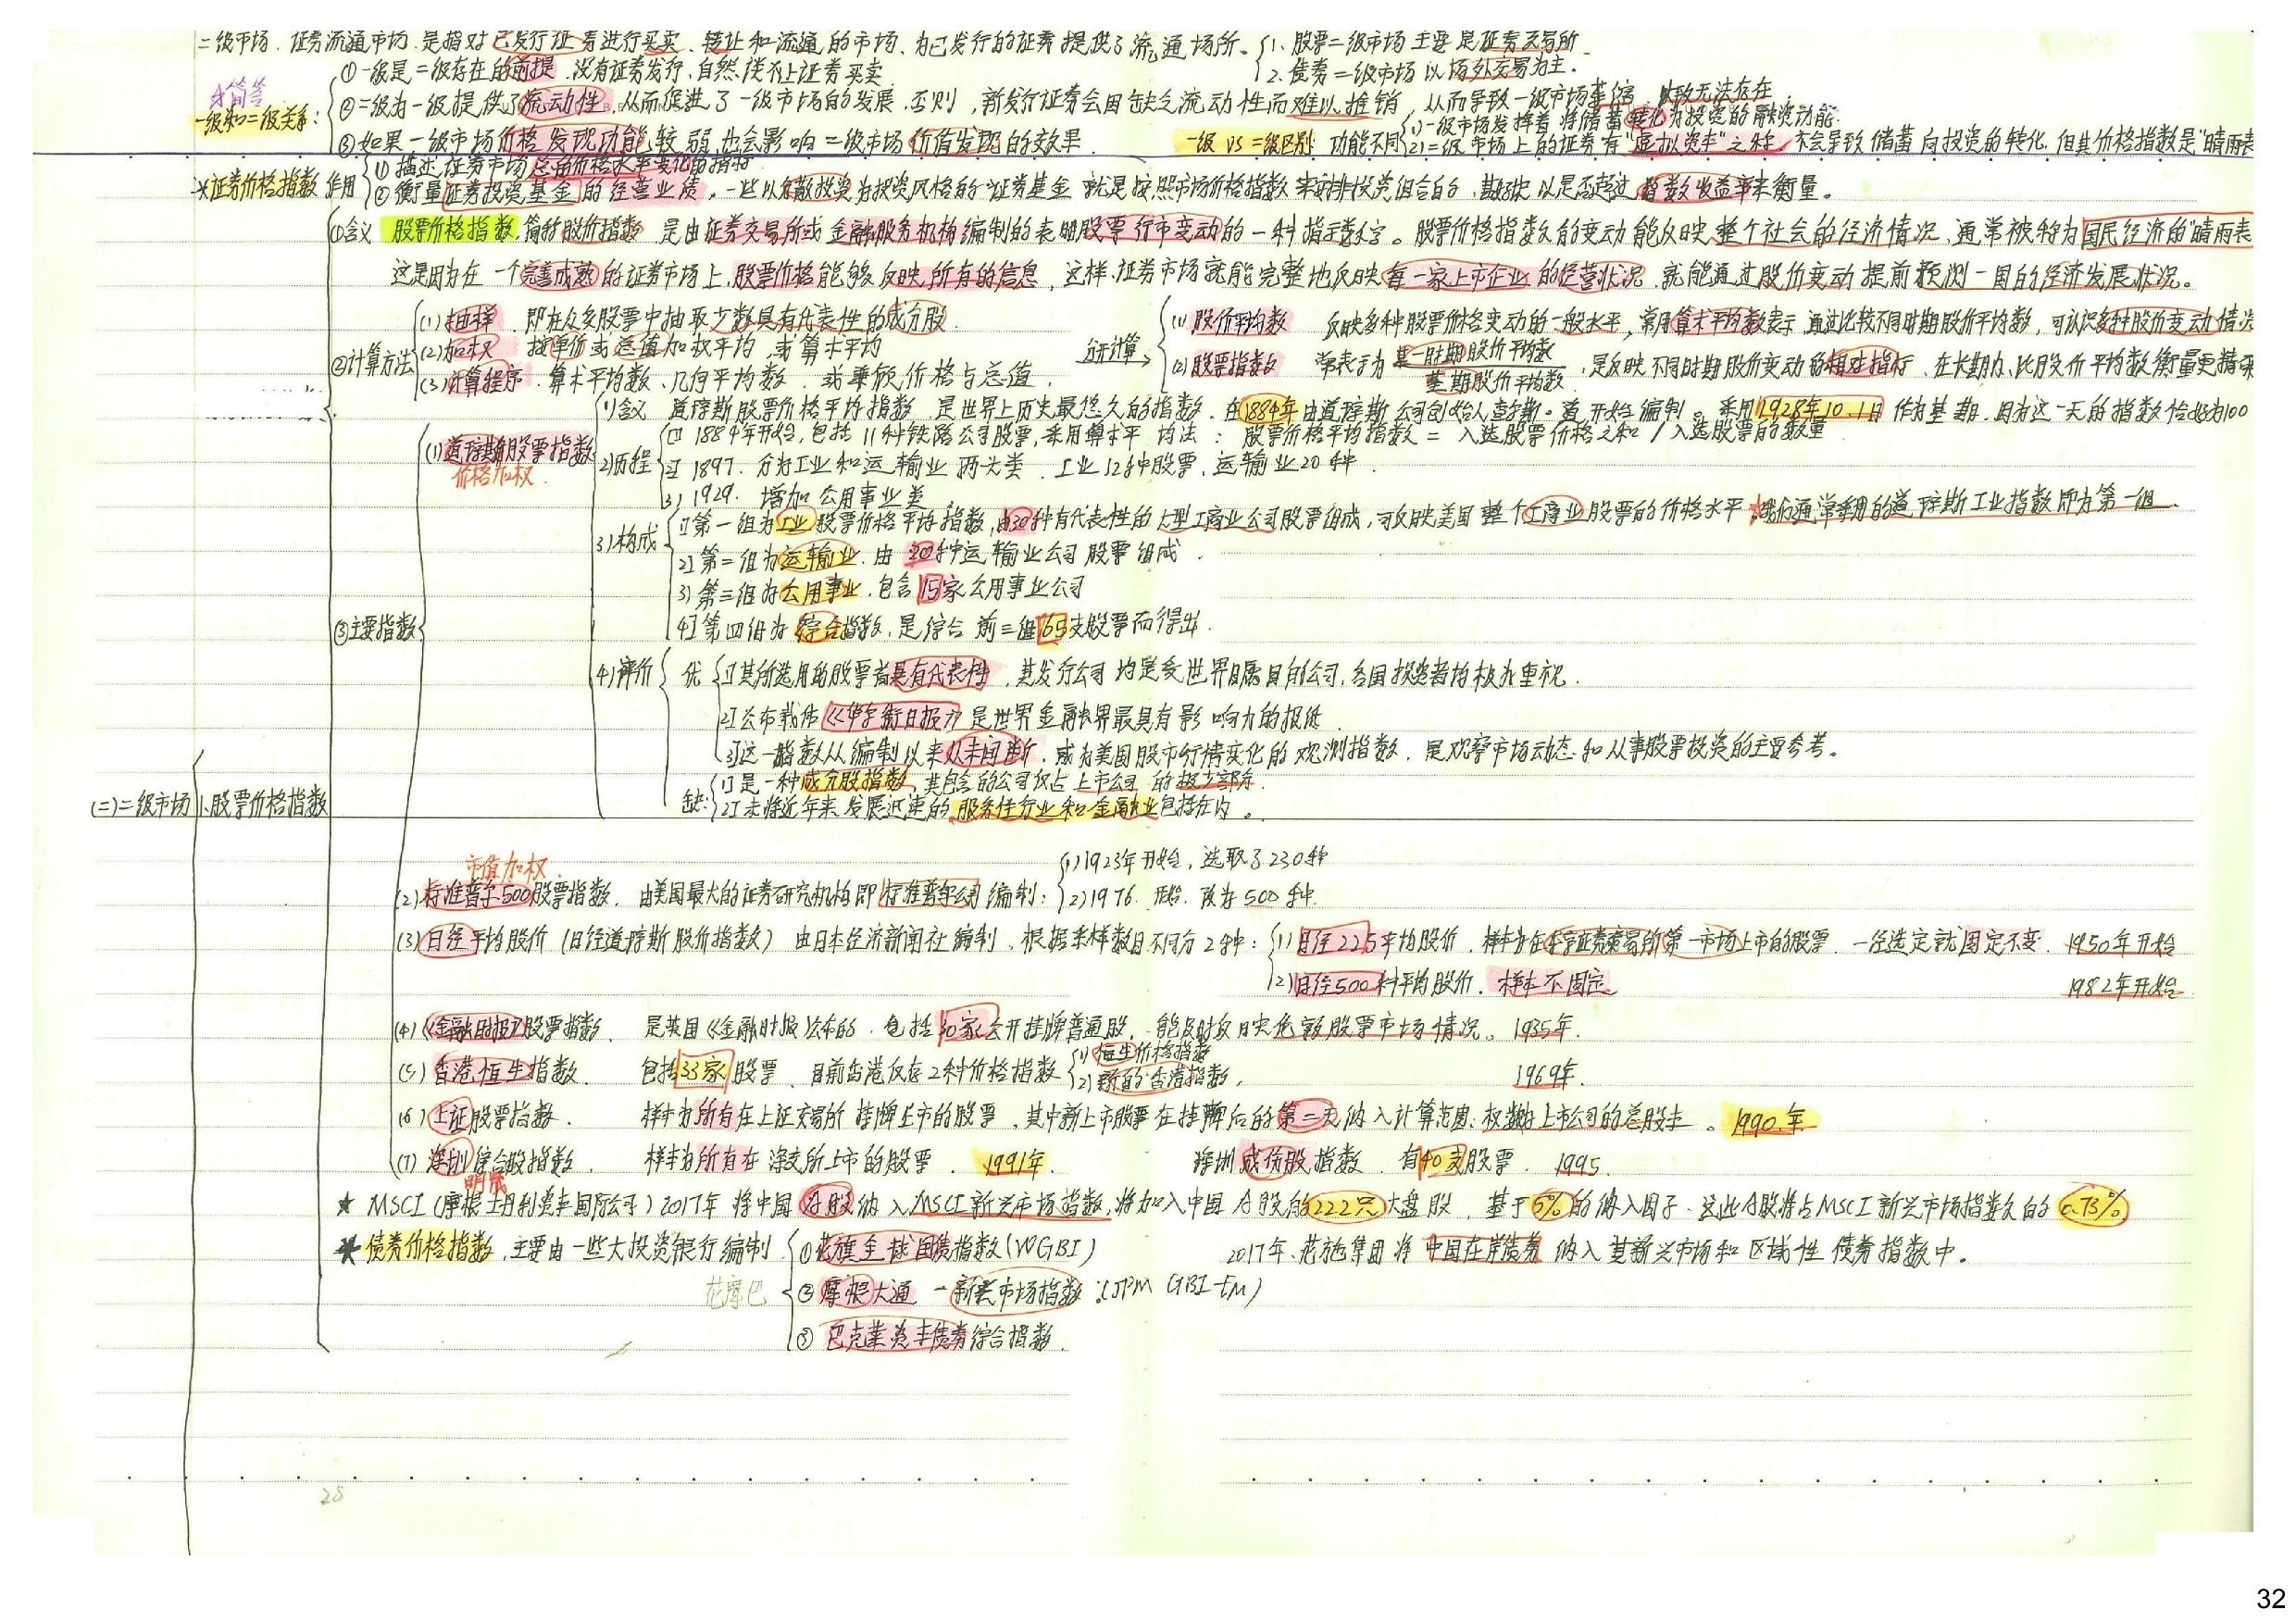 二级市场.证券流通市场.是指对已发行证券进行买卖、转让和流通的市场、为已发行的证券提供了流通场所。
1、股票二级市场主要是证券交易所
2.债券二级市场以场外交易为主.
☆简答
一级和二级关系:
①一级是二级存在的前提.没有证券发行,自然谈不上证券买卖
②二级为一级提供了流动性,从而促进了一级市场的发展.否则,新发行证券会因缺乏流动性而难以推销,从而导致一级市场萎缩,以致无法存在.
③如果一级市场价格发现功能较弱也会影响二级市场价值发现的效果.
一级 VS 二级区别: 功能不同
(1)一级市场发挥着将储蓄转化为投资的融资功能.
(2)二级市场上的证券有"虚拟资本"之称,不会导致储蓄向投资的转化.但其价格指数是"晴雨表
*证券价格指数 作用
① 描述证券市场总的价格水平变化的指标
② 衡量证券投资基金的经营业绩。一些以分散投资为投资风格的证券基金就是按照市场价格指数来安排投资组合的.其好坏以是否超过指数收益率来衡量。
(二)二级市场 1、股票价格指数
①含义 股票价格指数,简称股价指数 是由证券交易所或金融服务机构编制的表明股票行市变动的一种指示数字。股票价格指数的变动能反映整个社会的经济情况,通常被称为国民经济的"晴雨表
这是因为在一个完善成熟的证券市场上,股票价格能够反映所有的信息,这样.证券市场就能完整地反映每一家上市企业的经营状况.就能通过股价变动提前预测一国的经济发展状况。
②计算方法
(1)抽样.即在众多股票中抽取少数具有代表性的成分股.
(2)加权 按单价或总值加权平均,或算术平均
(3)计算程序.算术平均数、几何平均数.或兼顾价格与总值.
分开计算
(1)股价平均数 反映多种股票价格变动的一般水平,常用算术平均数表示 通过比较不同时期股价平均数,可认识多种股价变动情况
(2)股票指数 常表示为 某一时期股价平均数 / 基期股价平均数 ,是反映不同时期股价变动的相对指标.在长期内、比股价平均数衡量更精确
③主要指数
(1)道琼斯股票指数
价格加权.
1)含义 道琼斯股票价格平均指数.是世界上历史最悠久的指数.在1884年由道琼斯公司创始人查尔斯·道开始编制。采用1928年10.1日作为基期.因为这一天的指数恰好为100
2)历程
1] 1884年开始,包括11种铁路公司股票,采用算术平均法:股票价格平均指数=入选股票价格之和/入选股票的数量
2] 1897.分为工业和运输业两大类.工业12种股票.运输业20种.
3) 1929.增加公用事业类
3)构成
1]第一组为工业股票价格平均指数,由30种有代表性的大型工商业公司股票组成,可反映美国整个工商业股票的价格水平.我们通常引用的道琼斯工业指数即为第一组.
2]第二组为运输业.由20种运输业公司股票组成.
3)第三组为公用事业.包含15家公用事业公司
4]第四组为综合指数,是综合前三组65支股票而得出.
4)评价
优
1]其所选用的股票都具有代表性,其发行公司均是受世界瞩目的公司,各国投资者均极为重视.
2]公布载体《华尔街日报》是世界金融界最具有影响力的报纸
3]这一指数从编制以来从未间断,成为美国股市行情变化的观测指数,是观察市场动态和从事股票投资的主要参考。
缺:
1]是一种成分股指数,其包含的公司仅占上市公司的极少部分.
2]未将近年来发展迅速的服务性行业和金融业包括在内。
市值加权.
(2)标准普尔500股票指数.由美国最大的证券研究机构即标准普尔公司编制:
1)1923年开始,选取了230种
2)1976.开始.改为500种.
(3)日经平均股价(日经道琼斯股价指数)由日本经济新闻社编制.根据采样数目不同分2种:
(1)日经225平均股价.样本为在东京证券交易所第一市场上市的股票.一经选定就固定不变. 1950年开始
(2)日经500种平均股价.样本不固定 1982年开始
(4)《金融时报》股票指数. 是英国《金融时报》公布的.包括30家公开挂牌普通股,能及时反映伦敦股票市场情况。1935年.
(5)香港恒生指数. 包括33家股票.目前香港仅有2种价格指数
(1)恒生价格指数
(2)新的香港指数.
1969年.
(6)上证股票指数. 样本为所有在上证交易所挂牌上市的股票.其中新上市股票在挂牌后的第二天纳入计算范围.权数为上市公司的总股本。1990.年
(7)深圳综合股指数. 样本为所有在深交所上市的股票. 1991年. 深圳成份股指数.有40支股票. 1995.
明晟
★ MSCI(摩根士丹利资本国际公司)2017年将中国A股纳入MSCI新兴市场指数,将加入中国A股的222只大盘股,基于5%的纳入因子.这些A股将占MSCI新兴市场指数的0.73%
★债券价格指数.主要由一些大投资银行编制
①花旗全球国债指数(WGBI)
②摩根大通 — 新兴市场指数:(JPM GBI-EM)
③ 巴克莱资本债券综合指数.
花摩巴
2017年.花旗集团将中国在岸债券纳入其新兴市场和区域性债券指数中。
28
32